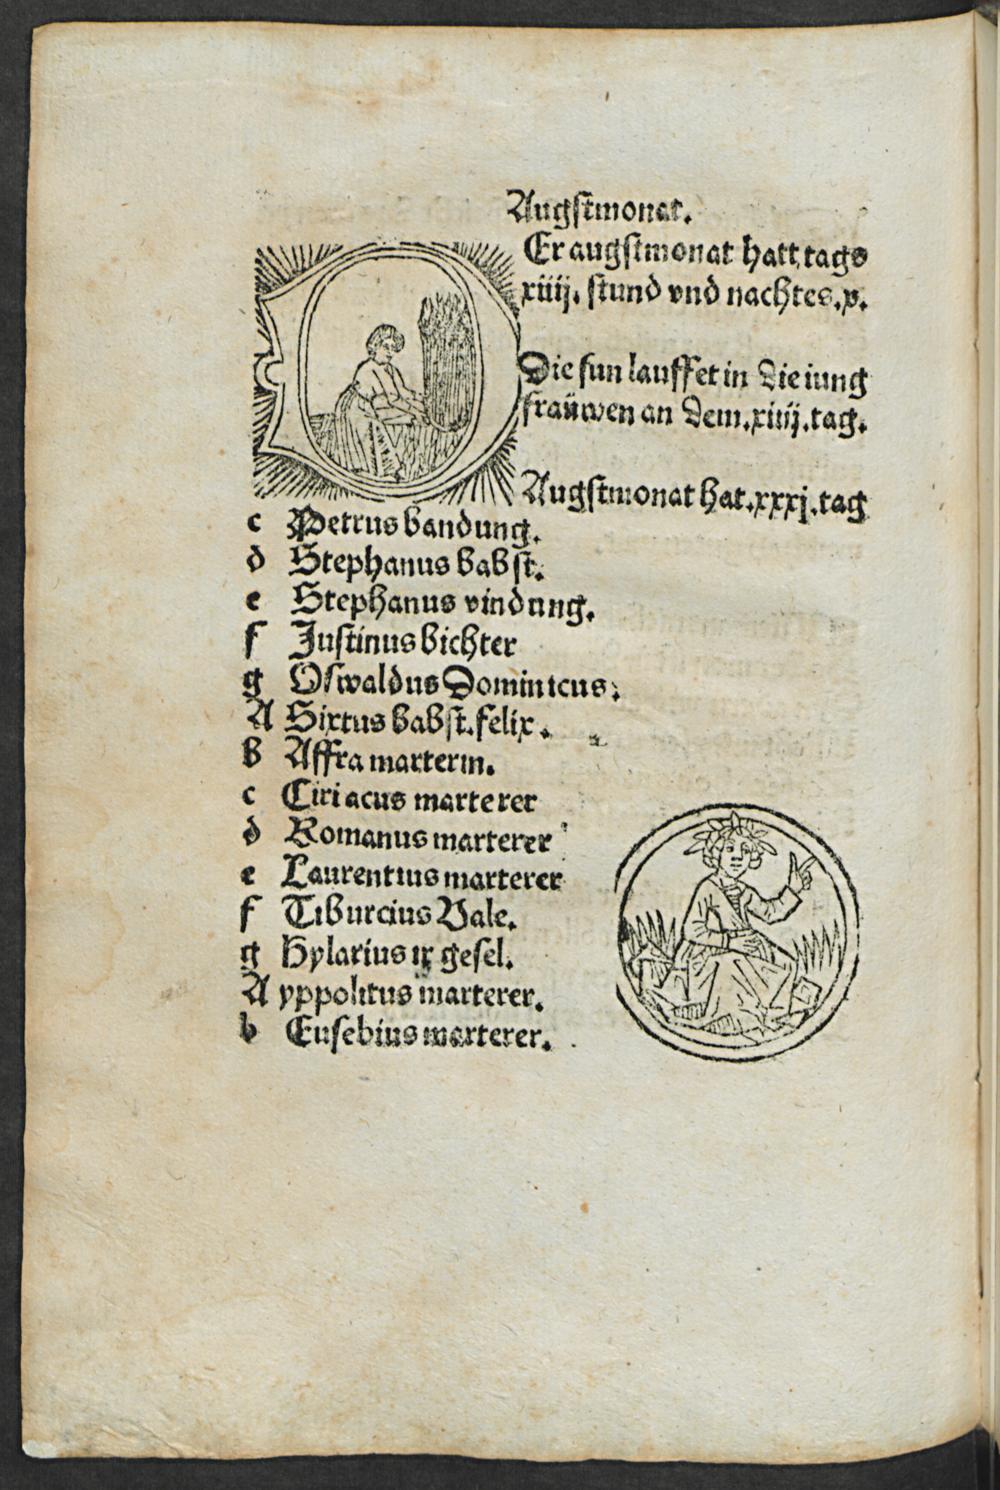 Augstmonat.
Er augstmonat hatt tags
xiiij. stund vnd nachtes .x.
Die sun lauffet in die iung
fraüwen an dem .xiiij. tag.
Augstmonat hat .xxxj. tag
c Petrus bandung.
d Stephanus babst.
e Stephanus vindung.
f Justinus bichter
g Oswaldus Dominicus.
A Sixtus babst. felix.
b Affra marterin.
c Ciriacus marterer
d Romanus marterer
e Laurentius marterer
f Tiburcius Vale.
g Hylarius ix gesel.
A yppolitus marterer.
b Eusebius marterer.